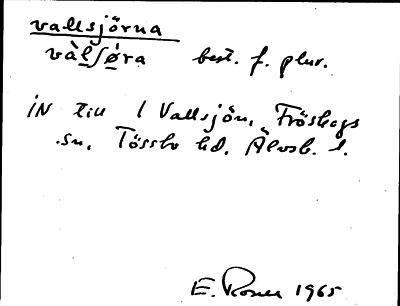 vallsjörna
vàlʃø̀ra best. f. plur.
IN till 1 Vallsjön, Fröskogs
sn, Tössbo hd. Älvsb. l.
E. Rosen 1965